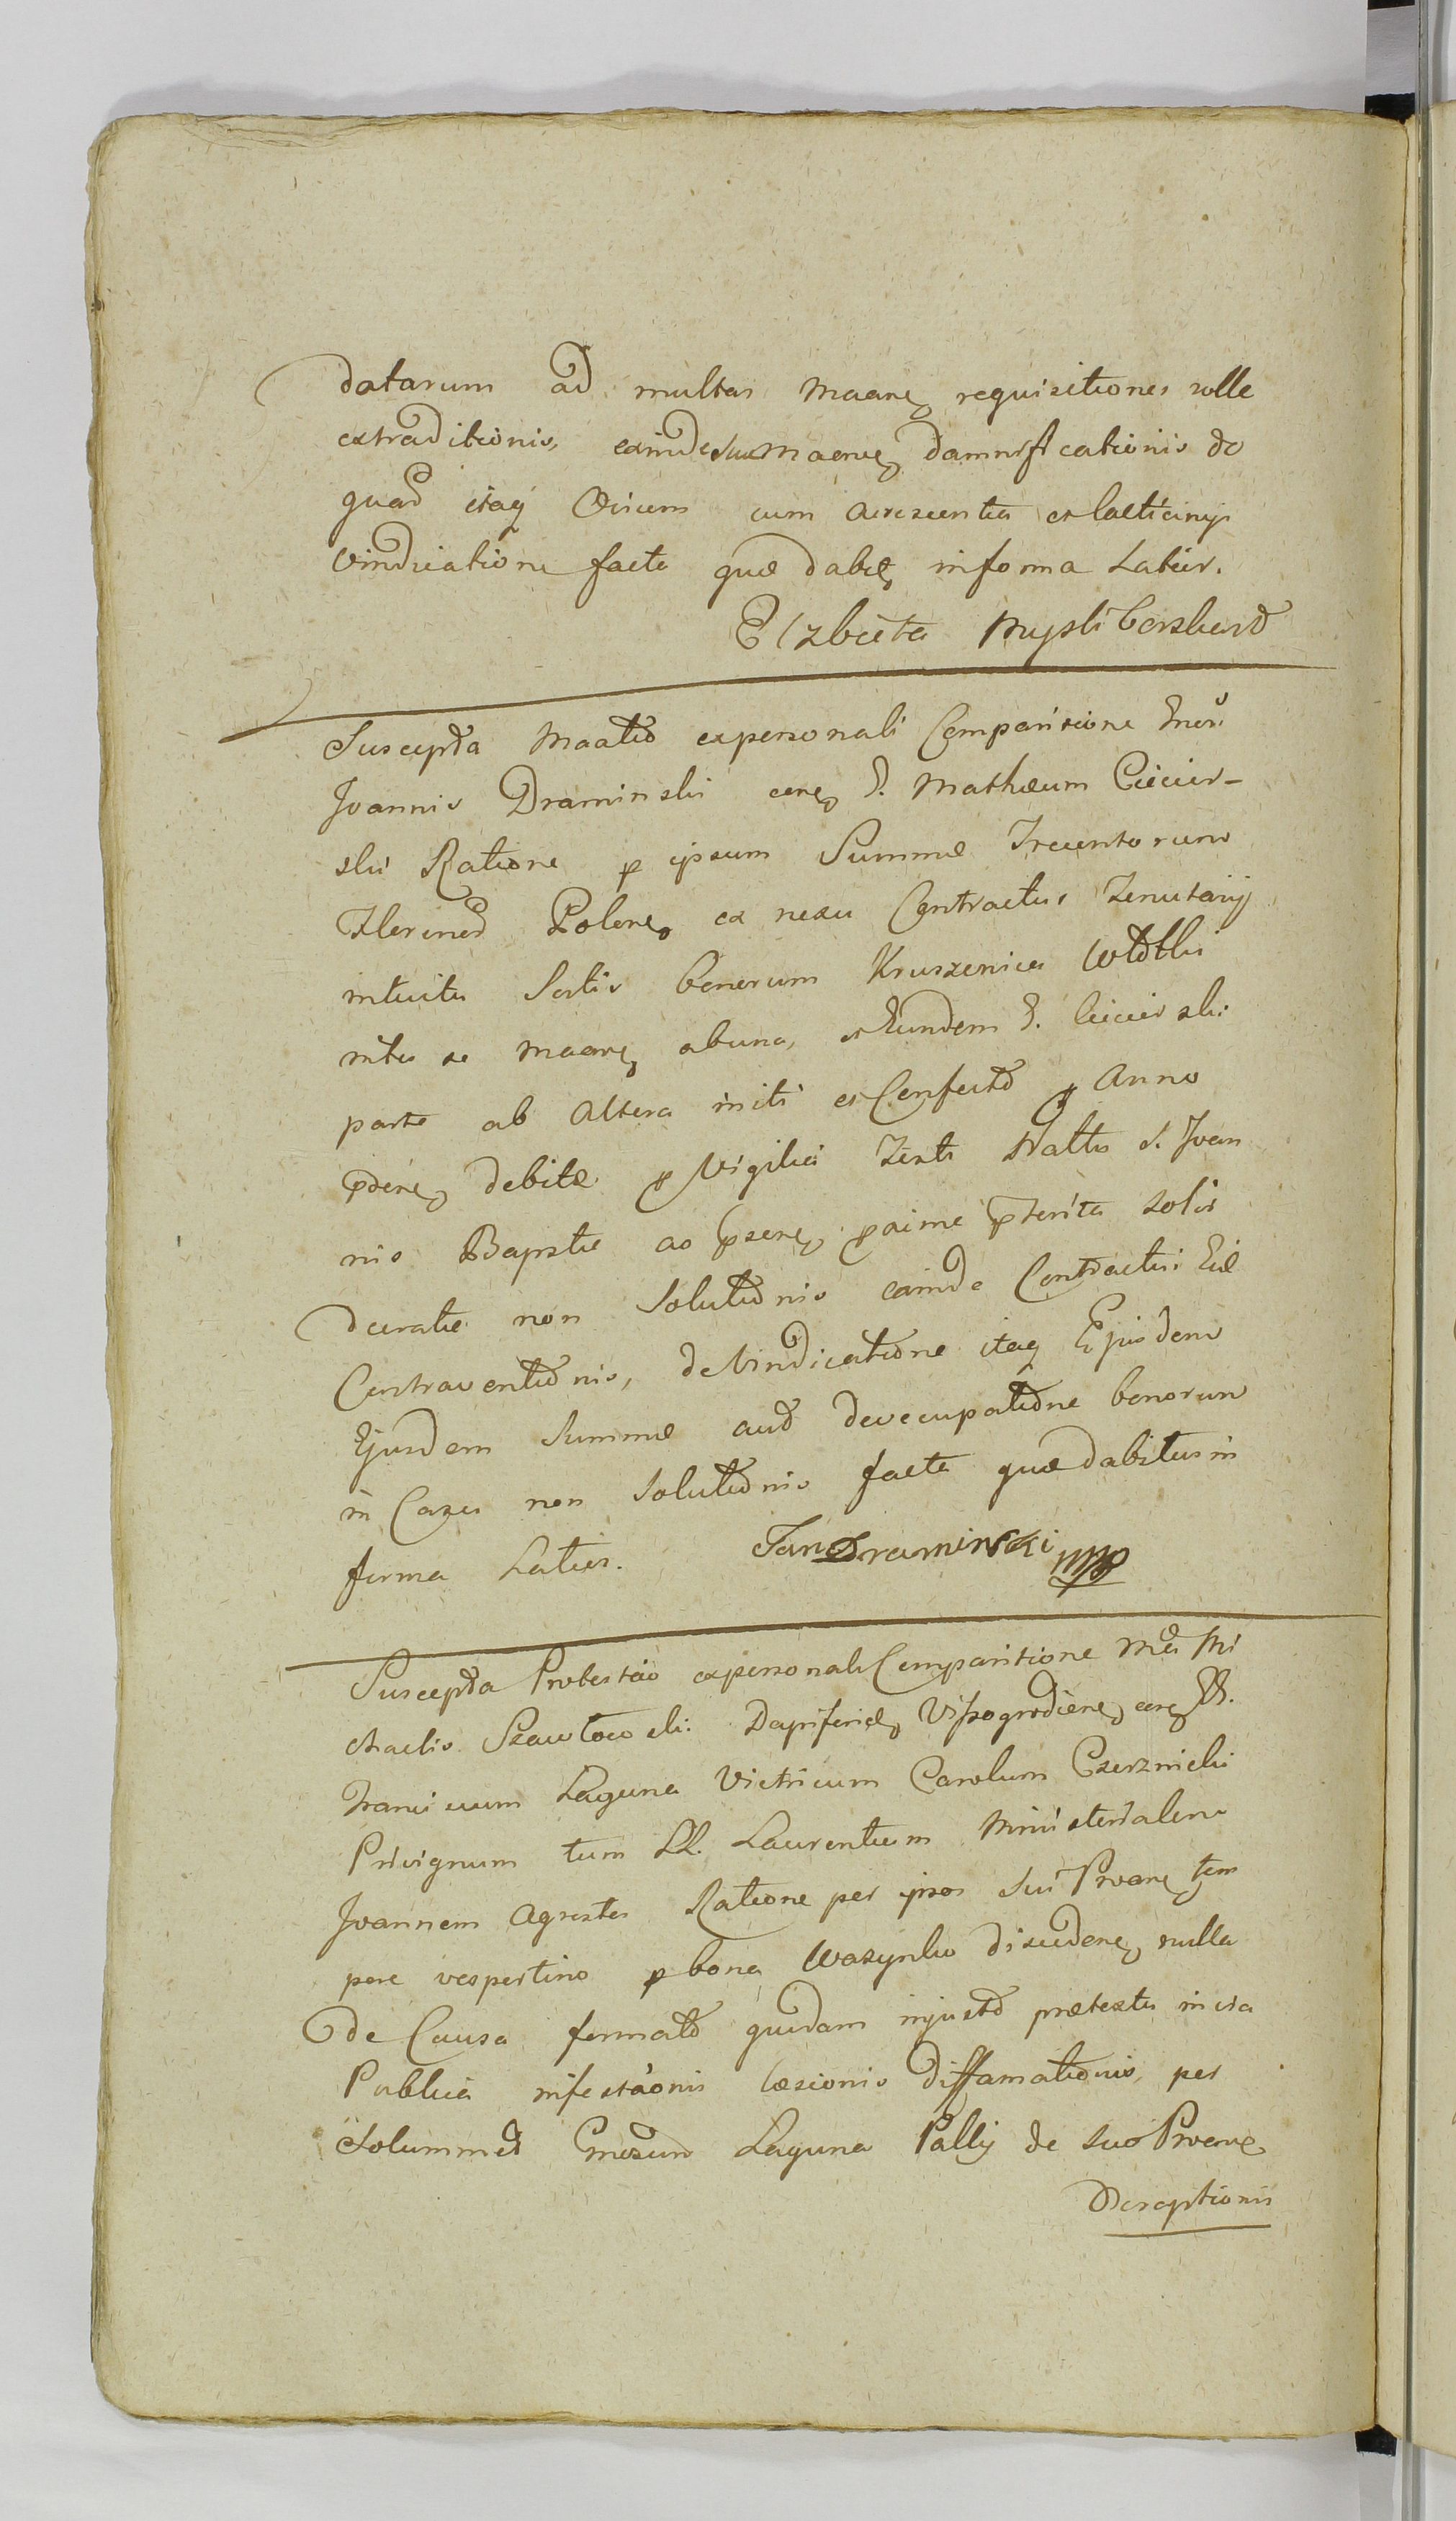 datarum ad multas Maane requisitiones nolle
extraditionis, exinde suae Maenve damnificationis de
quad itaq Ovium cum accrescentia et lacticinijs
vindicatione facta quae dabit in forma Latior.
Elzbieta Mysliborska
Suscepta Maatio ex personali Comparitione Gnosi
Joannis Draminski cone G. Mathaeum Ciecier-
ski Ratione p ipsum Summae Trecentorum
Florenor Polone ex nexu Contractus Tenutarij
intuitu Sortis bonorum Kruszenica
inter se Maane ab una, et Eundem G. Ciecierski
parte ab altera initi et Confecti p Anno
debitae p Vigilia Festi Natti S. Joan
nis Baptae ao psene pxime pterita solvi
decratae non Solutionis exinde Contractui
Contraventionis, de Vindicatione itaq Ejusdem
Ejusdem Summae aut deoccupatione bonorum
in Casu non Solutionis facta quae dabitur in
forma Latior. Jan Draminski mp
Suscepta Protestaõ ex personali Comparitione Mci Mi
chaelis Szawlowski Dapiferidae Vissogrodiene cone GG.
Franciscum Laguna Vitricum Carolum Czerznicki
Privignum tum LL. Laurentium Ministerialem
Joannem agrestes Ratione per ipsos Sui Proane tem
pore vespertino p bona Wasynko discedene nulla
de Causa formato quodam injusto praetextu in via
Publica infestaõnis laesionis diffamationis, per
Solummet Gnosum Laguna Pallij de suo Proane
Direptionis